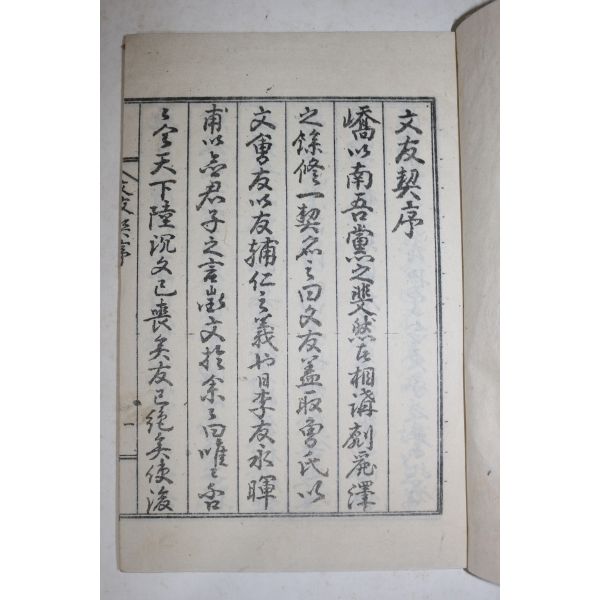 文友契序
嶠以南吾黨之斐然者相講劘麗澤
之餘修一契名之曰文友盖取曾氏以
文會友以友輔仁之義也日李友永暉
甫以君子之言徵文於余々曰唯々否
々今天下陸沉文已喪矣友已絕矣使後
文友契序
一